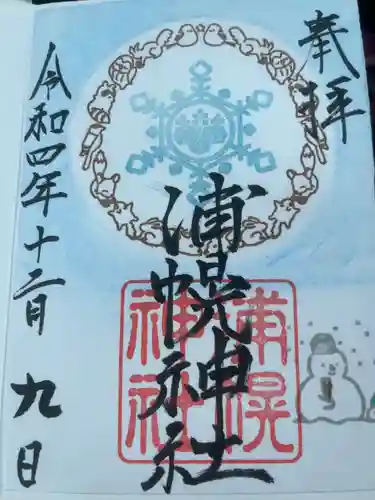 奉拝
浦幌神社
浦幌
神社
令和四年十二月九日